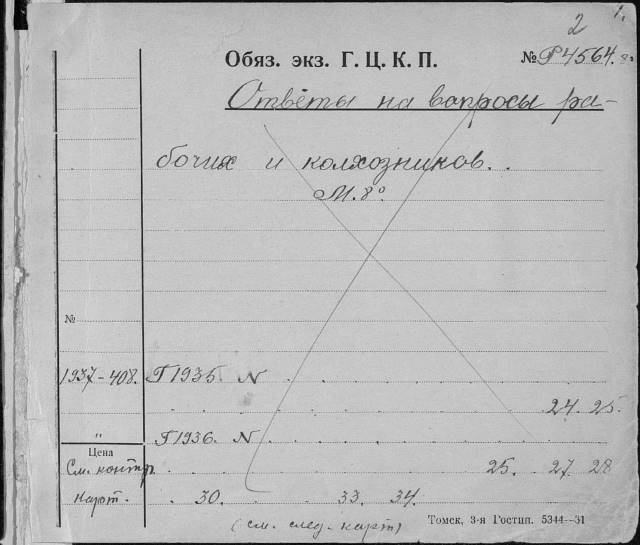 2 1.
Обяз. экз. Г. Ц. К. П. № Р4564.
Ответы на вопросы ра-
бочих и колхозников. .
М. 8º.
№
1937-408. Г1935. N . . . . . . .
. . . . . . . 24. 25.
" Г1936. N . . . . . . .
Цена
См. контр. . . . . . . 25. 27. 28
карт. . 30. . . 33. 34.
(см. след. карт)
Томск, 3-я Гостип. 5344—31